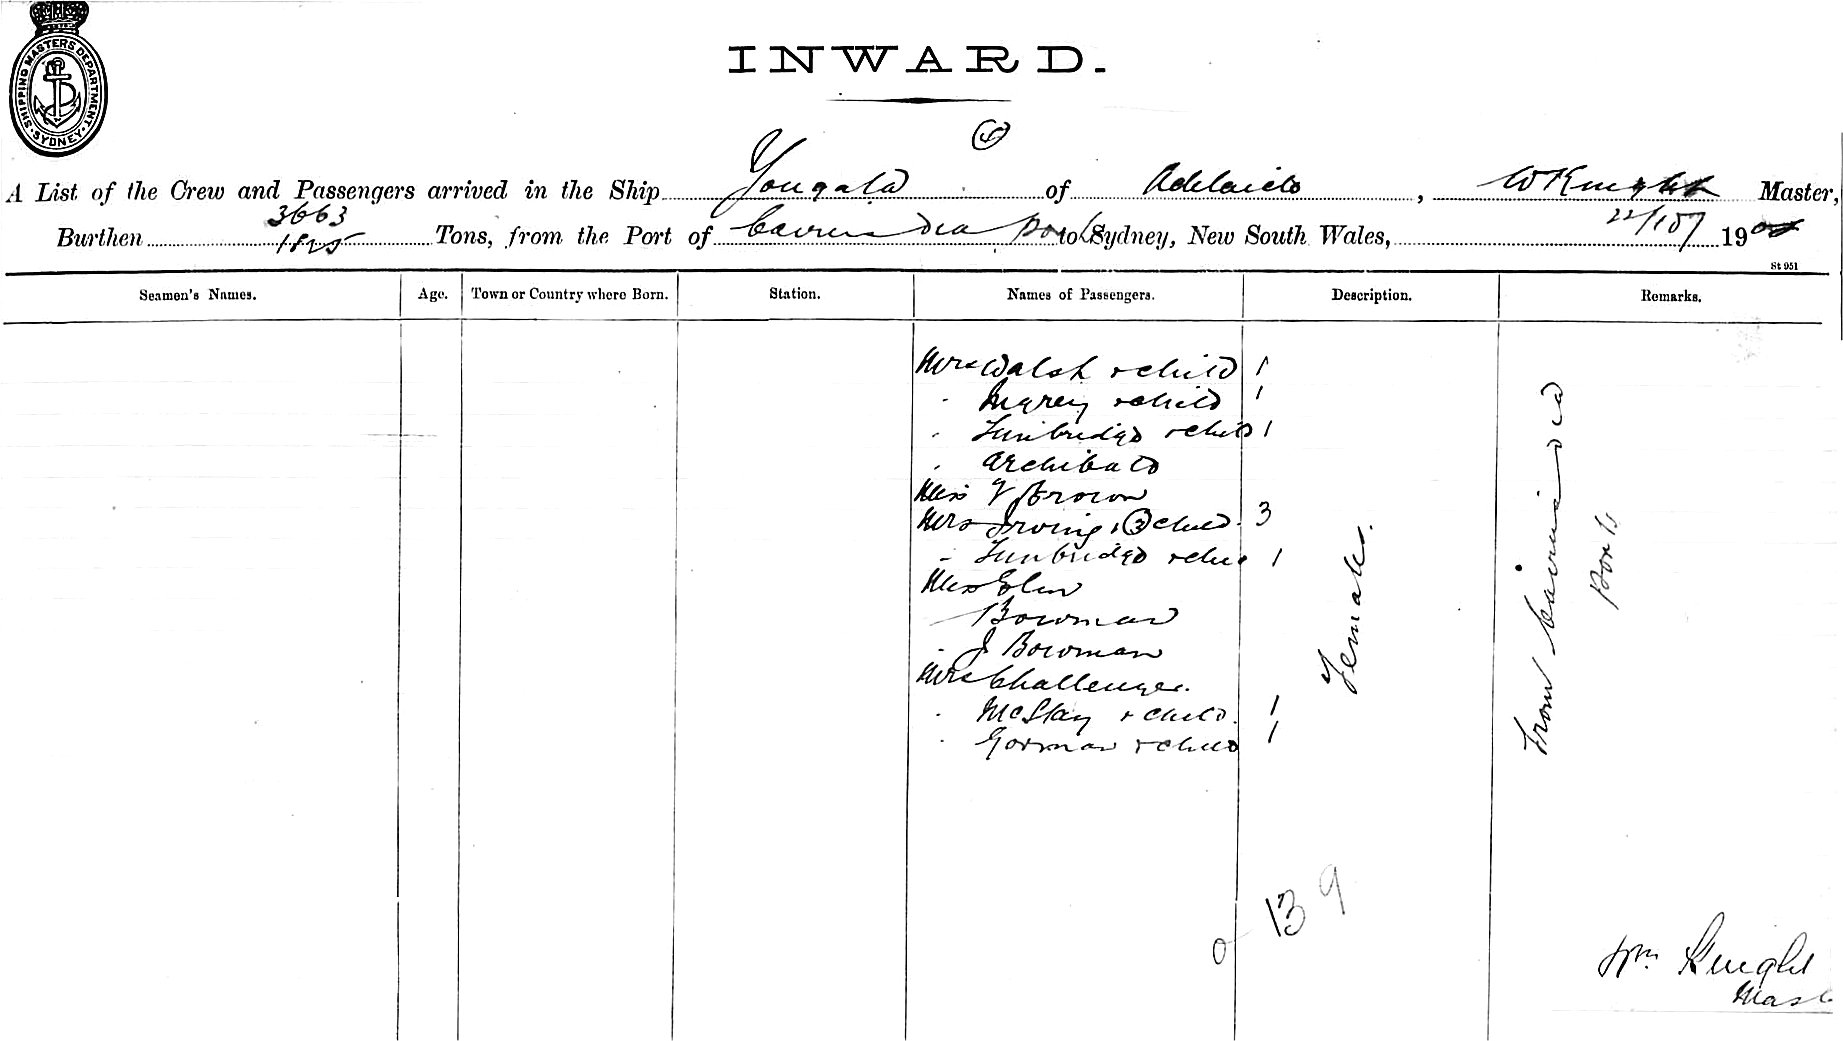 SHIPPING MASTERS DEPARTMENT · SYDNEY ·
INWARD.
4
A List of the Crew and Passengers arrived in the Ship Yongala of Adelaide, W Knight Master,
3663
Burthen 1825 Tons, from the Port of Cairns via ports to Sydney, New South Wales, 22/1/07 190
St 951
Seamen's Names. Age. Town or Country where Born. Station. Names of Passengers. Description. Remarks.
Mrs Walsh + child 1
" + child 1
" Tunbridge + child 1
" Archibald
Miss V Brown
Mrs Irving + 3 child. 3
" Tunbridge + child 1
Miss
Bowman
" J Bowman
Mrs Challenger.
" McStay + child. 1
" Gorman + child 1
Females.
From Cairns via
ports
0 13 9
Wm Knight
Mast